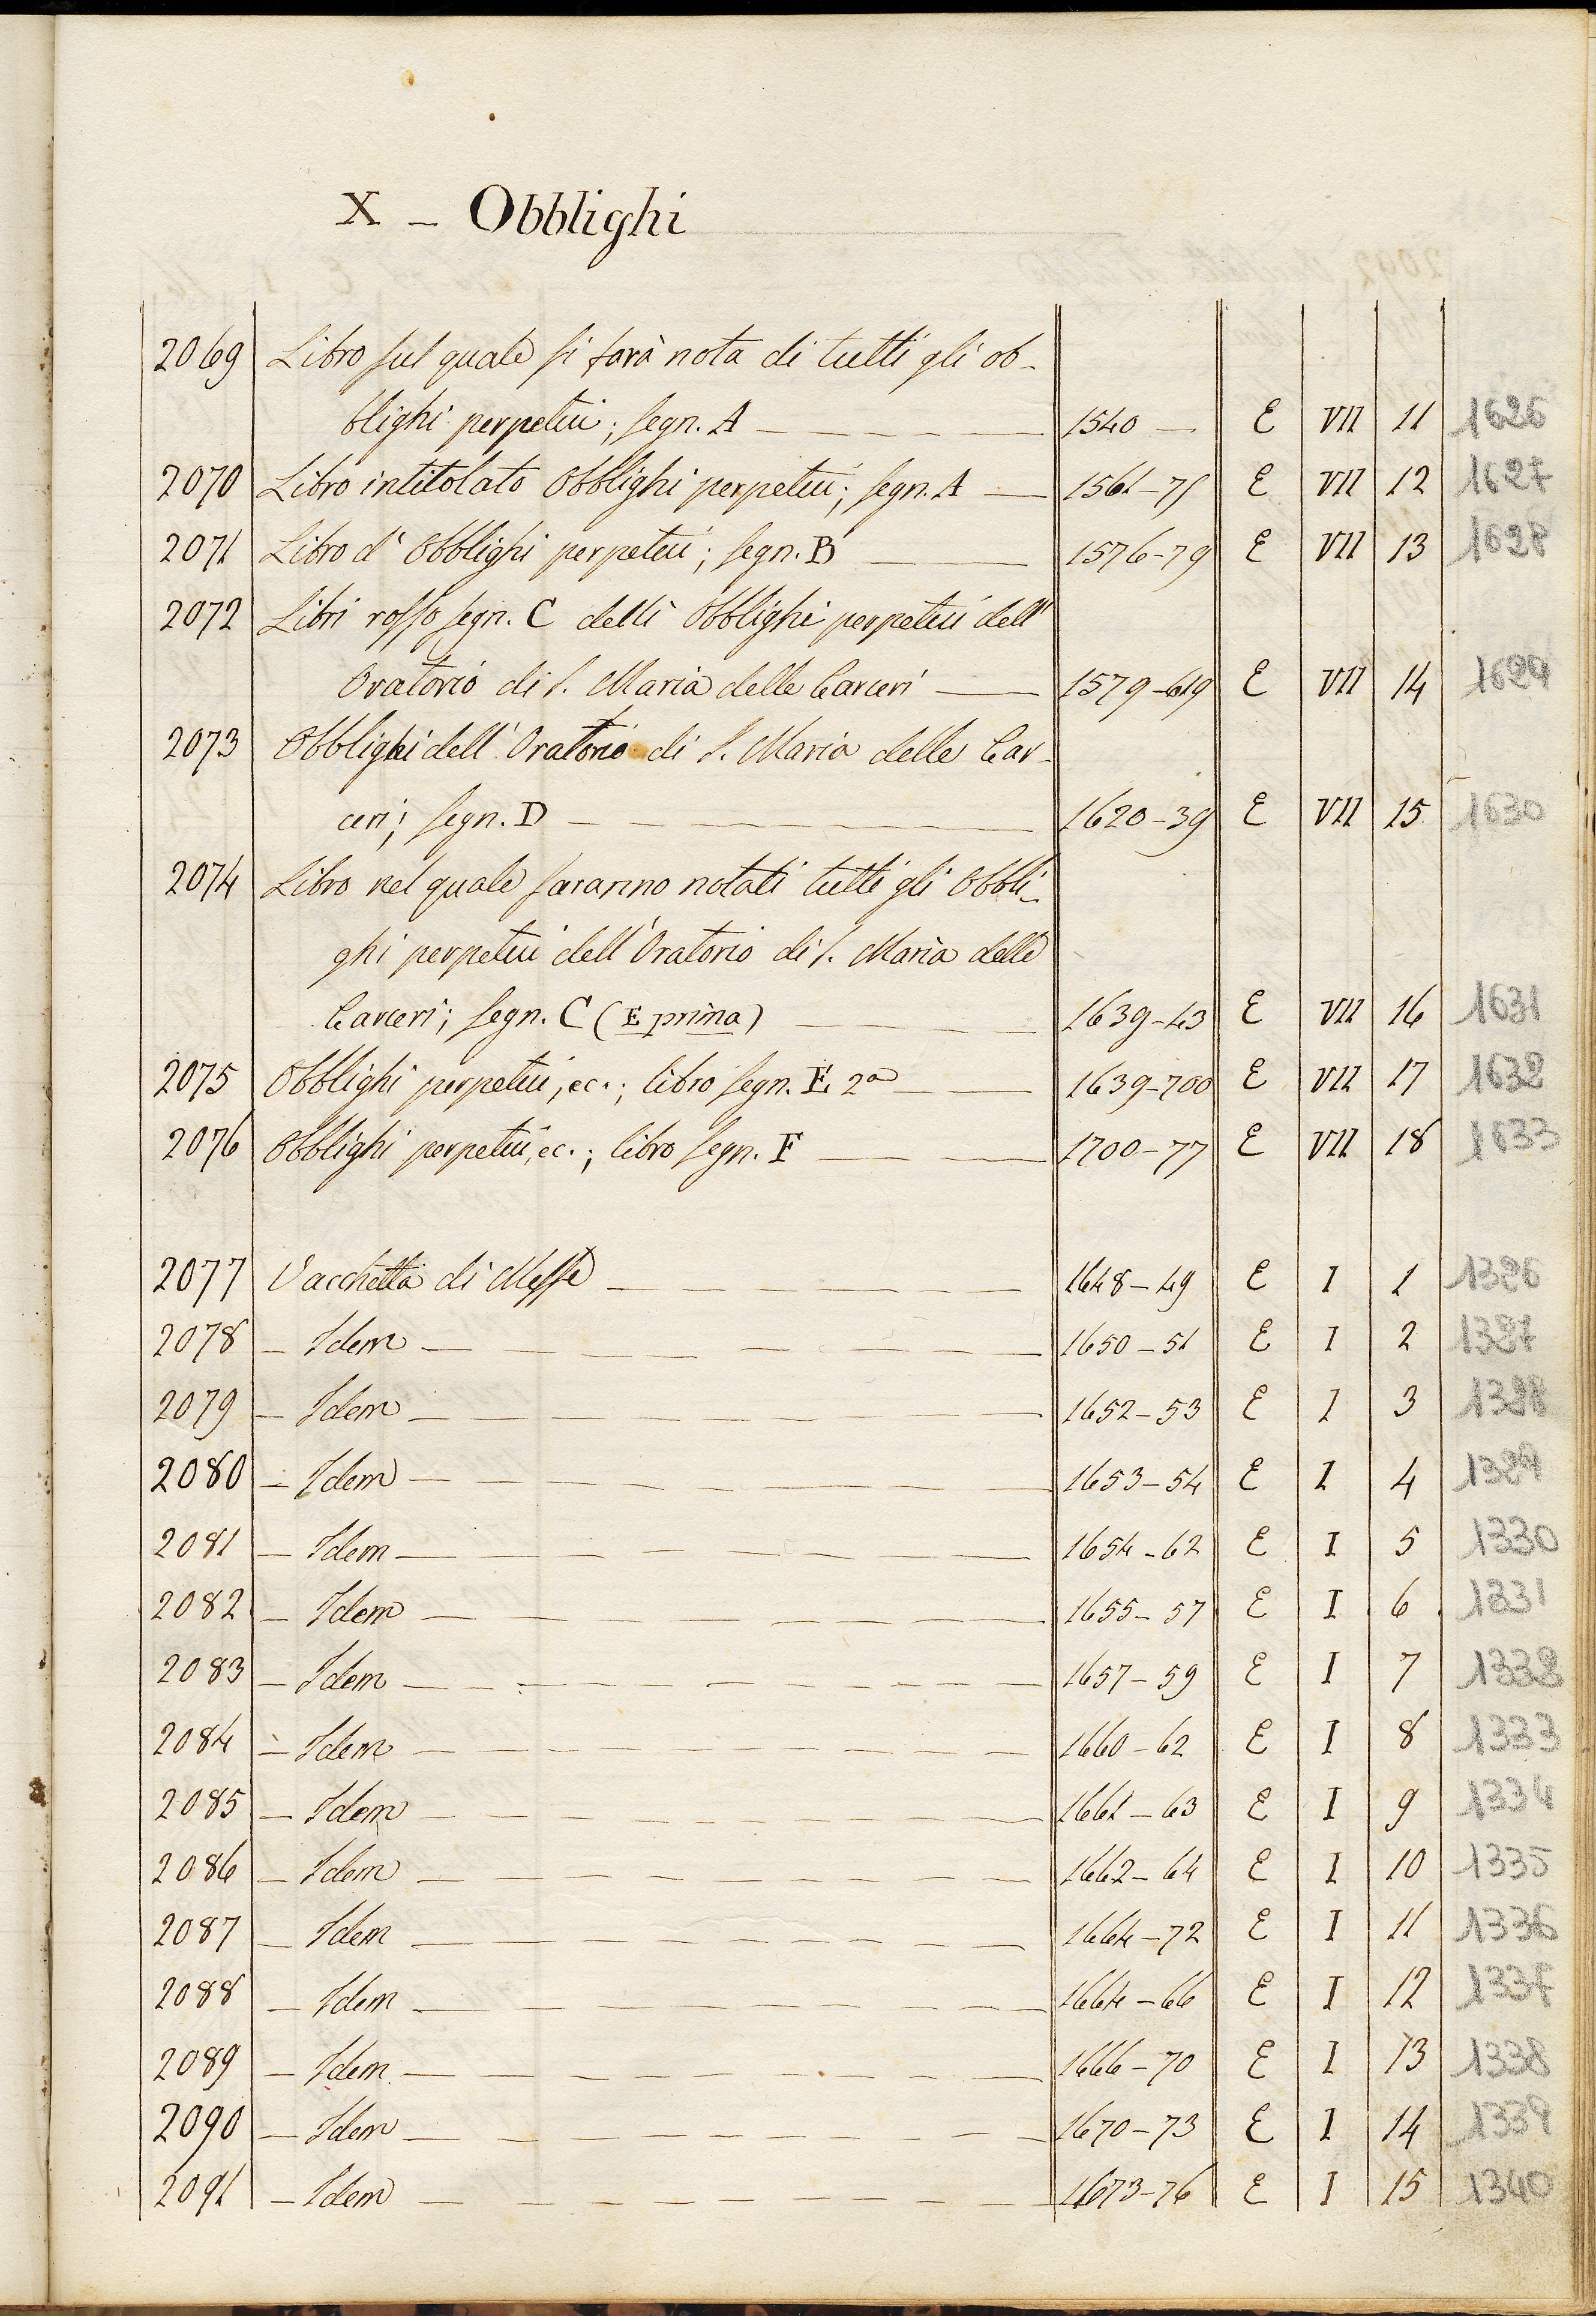 X – Obblighi
2069 Libro sul quale si farà nota di tutti gli ob-
blighi perpetui; segn. A 1540 — E VII 11 1626
2070 Libro intitolato Obblighi perpetui; segn. A 1561-75 E VII 12 1627
2071 Libro d'Obblighi perpetui; segn. B 1576-79 E VII 13 1628
2072 Libri rosso segn. C delli Obblighi perpetui dell'
Oratorio di S. Maria delle Carceri 1579-619 E VII 14 1629
2073 Obblighi dell'Oratorio di S. Maria delle Car-
ceri; segn. D 1620-39 E VII 15 1630
2074 Libro nel quale saranno notati tutti gli Obbli-
ghi perpetui dell'Oratorio di S. Maria delle
Carceri; segn. C (E prima) 1639-43 E VII 16 1631
2075 Obblighi perpetui, ec.; libro segn. E 2a 1639-700 E VII 17 1632
2076 Obblighi perpetui, ec.; libro segn. F 1700-77 E VII 18 1633
2077 Vacchetta di Messe 1648-49 E I 1 1326
2078 – Idem 1650-51 E I 2 1327
2079 – Idem 1652-53 E I 3 1328
2080 – Idem 1653-54 E I 4 1329
2081 – Idem 1654-62 E I 5 1330
2082 – Idem 1655-57 E I 6 1331
2083 – Idem 1657-59 E I 7 1332
2084 – Idem 1660-62 E I 8 1333
2085 – Idem 1661-63 E I 9 1334
2086 – Idem 1662-64 E I 10 1335
2087 – Idem 1664-72 E I 11 1336
2088 – Idem 1664-66 E I 12 1337
2089 – Idem 1666-70 E I 13 1338
2090 – Idem 1670-73 E I 14 1339
2091 – Idem 1673-76 E I 15 1340